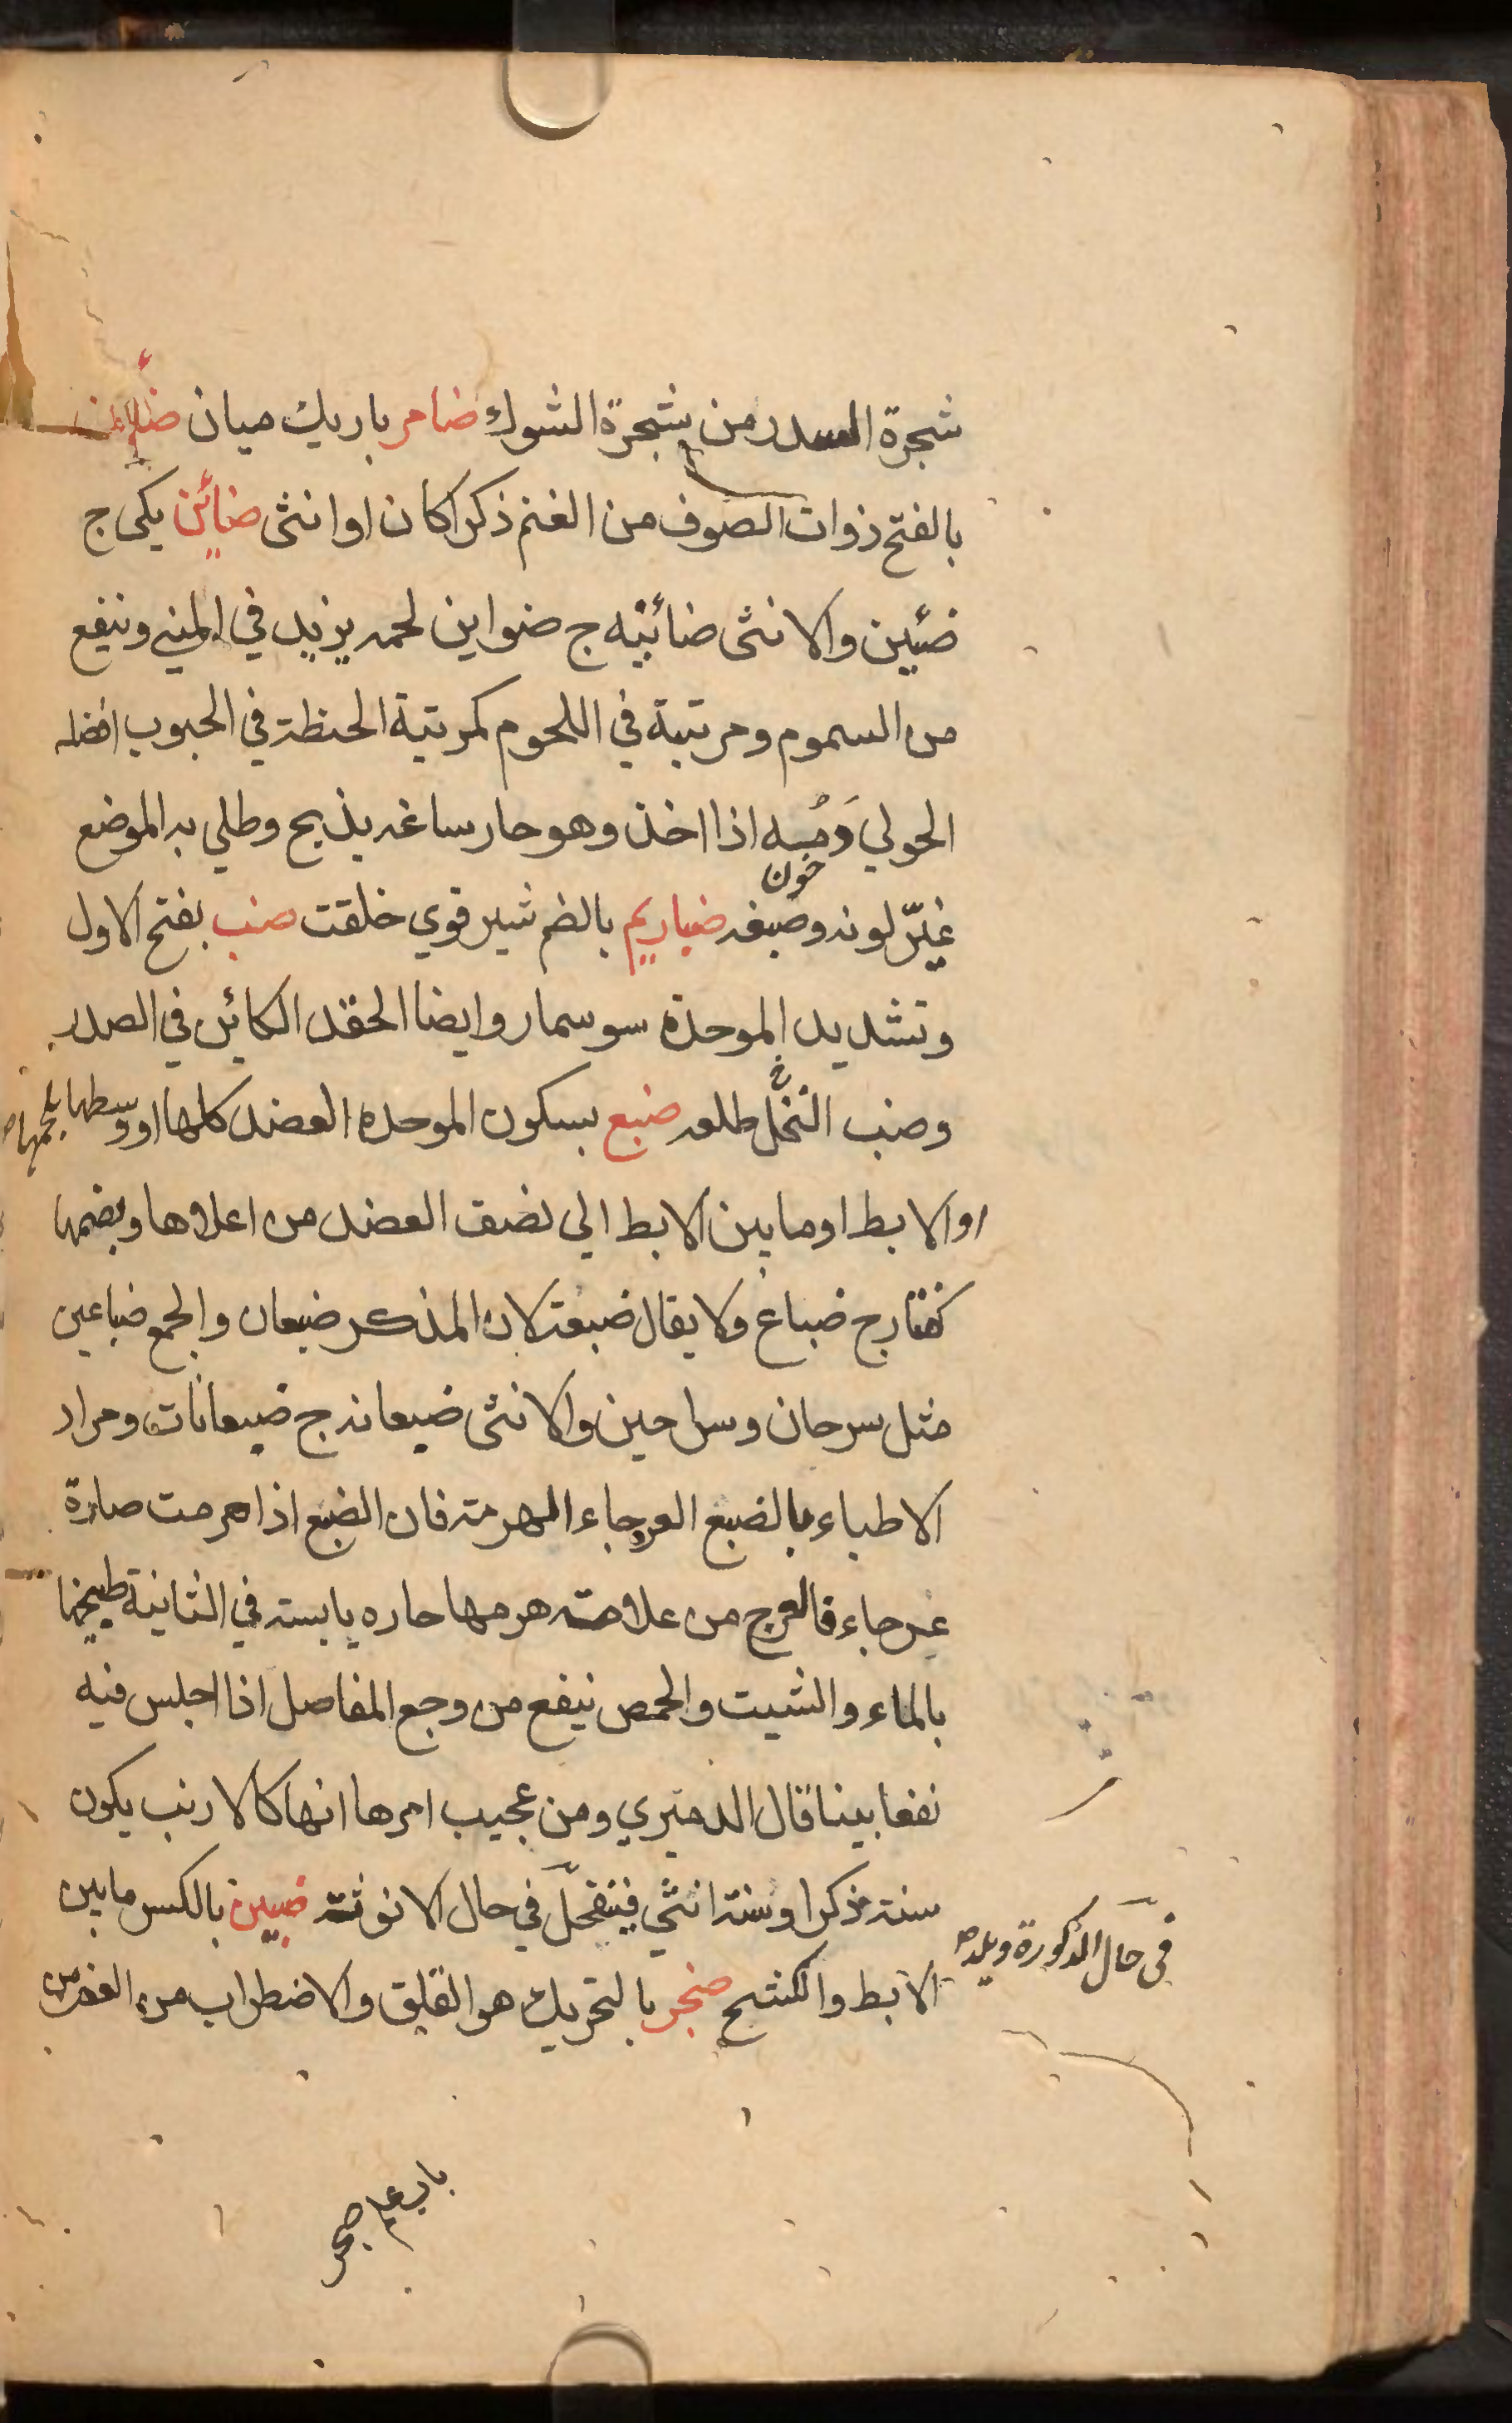 شجرة السدر من شجرة الشوك ضامر باريك ميان ضأن
بالفتح ذوات الصوف من الغنم ذكرا كان او انثى ضائن يكى ج
ضئين والانثى ضائنه ج ضواين لحمه يزيد في المني وينفع
من السموم ومرتبة في اللحوم كمرتبة الحنظة في الحبوب افضله
الحولي وَمِنه اذا اخذ وهو حار ساغه يذبح وطلي به الموضع
خون
غيّر لونه وصبغه ضباريم بالضم شير قوي خلقت ضب بفتح الاول
وتشديد الموحدة سوسمار وايضا الحقد الكائن في الصدر
وضب النخل طلعه ضبع بسكون الموحده العضد كلها او وسطها بلحمها
او الابط او ما بين الابط الي نصف العضد من اعلاها وبضمها
كفتار ج ضباع ولا يقال ضبعة لان المذكر ضبعان والجمع ضباعين
مثل سرحان وسراحين والانثى ضبعانه ج ضبعانات ومراد
الاطباء بالضبع العرجاء الهرمة فان الضبع اذا هرمت صارة
عرجاء فالعرج من علامة هرمها حاره يابسته في الثانية طبيخها
بالماء والشبت والحمص ينفع من وجع المفاصل اذا اجلس فيه
نفعا بينا قال الدميري ومن عجيب امرها انها كالارنب يكون
سنة ذكرا وسنة انثي فينفحل في حال الانوثة ضبين بالكسر ما بين
في حال الذكورة ويلد
الابط والكشح ضجر بالتحريك هو القلق والاضطراب من الغم